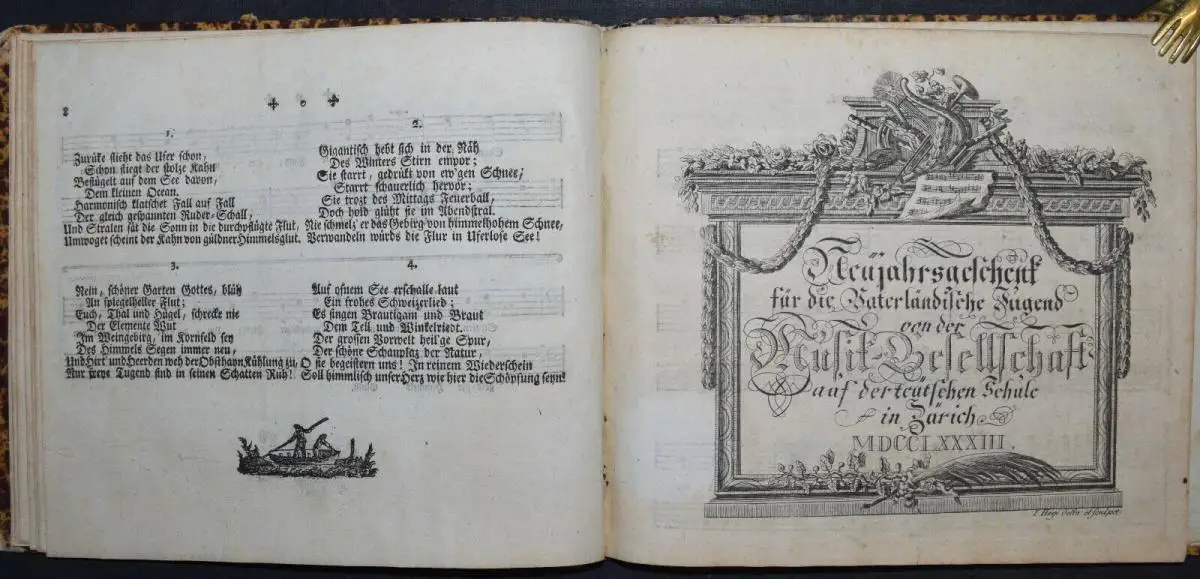 8
1.
Zurüke flieht das Ufer schon,
Schon fliegt der stolze Kahn
Beflügelt auf dem See davon,
Dem kleinen Ocean.
Harmonisch klatschet Fall auf Fall
Der gleich gespannten Ruder-Schall,
Und Stralen sät die Sonn in die durchpflügte Flut,
Umwoget scheint der Kahn von güldner Himmelsglut.
2.
Gigantisch hebt sich in der Näh
Des Winters Stirn empor;
Sie starrt, gedrükt von ew'gen Schnee,
Starrt schauerlich hervor;
Sie trozt des Mittags Feuerball,
Doch hold glüht sie im Abendstral.
Nie schmelz' er das Gebirg von himmelhohem Schnee,
Verwandeln würds die Flur in Uferlose See!
3.
Nein, schöner Garten Gottes, blüh
An spiegelheller Flut;
Euch, Thal und Hügel, schrecke nie
Der Elemente Wut
Im Weingebirg, im Kornfeld sey
Des Himmels Segen immer neu,
Und Hirt und Heerden weh der Obsthayn Kühlung zu,
Nur Tugend find in seinen Schatten Ruh!
4.
Auf ofnem See erschalle laut
Ein frohes Schweizerlied;
Es singen Bräutigam und Braut
Dem Tell und Winkelriedt.
Der grossen Vorwelt heil'ge Spur,
Der schöne Schauplaz der Natur,
O sie begeistern uns! In reinem Wiederschein
Soll himmlisch unser Herz wie hier die Schöpfung seyn!
Neüjahrsgeschenk
für die Vaterländische Jugend
von der
Musik-Gesellschaft
auf der teütschen Schule
in Zürich
MDCCLXXXIII.
I. Hegi delin et sculpsit